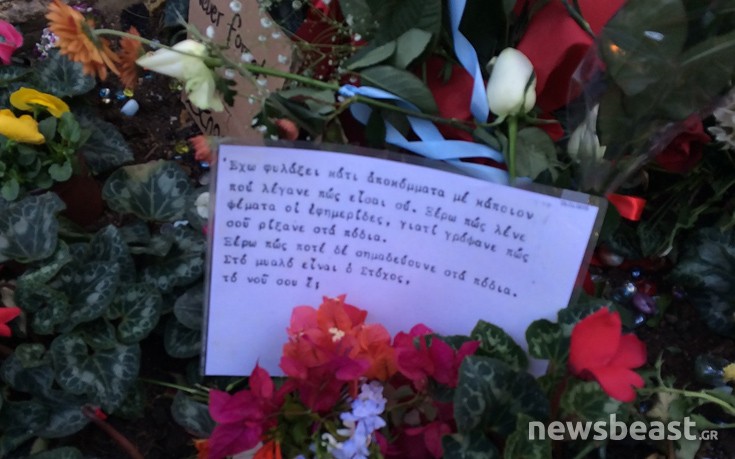 ever for
Ἔχω φυλάξει κάτι ἀποκόμματα μέ κάποιον
πού λέγανε πώς εἶσαι σύ. Ξέρω πώς λένε
ψέματα οἱ ἐφημερίδες, γιατί γράψανε πώς
σοῦ ρίξανε στά πόδια.
Ξέρω πώς ποτέ δέ σημαδεύουνε στά πόδια.
Στό μυαλό εἶναι ὁ Στόχος,
τό νοῦ σου ἔ;
newsbeast.GR